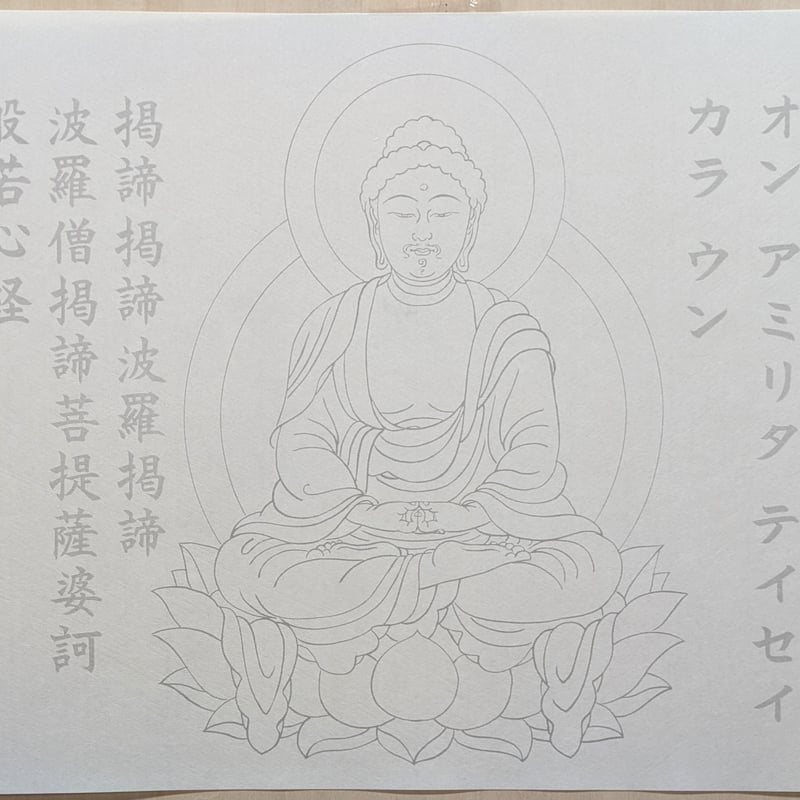 オン アミリタ テイセイ
カラ ウン
掲諦掲諦波羅掲諦
波羅僧掲諦菩提薩婆訶
般若心経